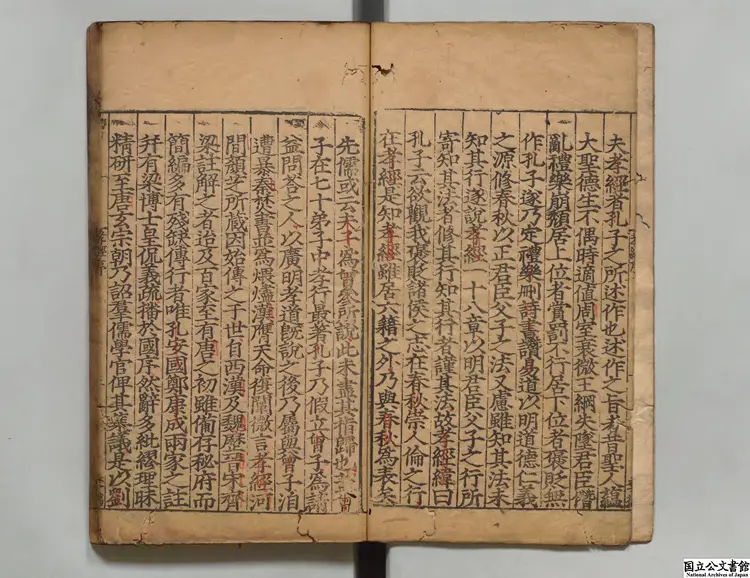 夫孝經者孔子之所述作也述作之旨者昔聖人蘊
大聖德生不偶時適值周室衰微王綱失墜君臣僭
亂禮樂崩頹居上位者賞罰不行居下位者褒貶無
作孔子遂乃定禮樂刪詩書讚易道以明道德仁義
之源修春秋以正君臣父子之法又慮雖知其法未
知其行遂說孝經一十八章以明君臣父子之行所
寄知其法者修其行知其行者謹其法故孝經緯曰
孔子云欲觀我褒貶諸侯之志在春秋崇人倫之行
在孝經是知孝經雖居六籍之外乃與春秋爲表矣
先儒或云夫子爲曾參所說此未盡其指歸也蓋曾
子在七十弟子中孝行最著孔子乃假立曾子爲請
益問答之人以廣明孝道旣說之後乃屬與曾子洎
遭暴秦焚書並爲煨燼漢膺天命復闡微言孝經河
間顏芝所藏因始傳之于世自西漢及魏歷晉宋齊
梁註解之者迨及百家至有唐之初雖備存秘府而
簡編多有殘缺傳行者唯孔安國鄭康成兩家之註
并有梁博士皇侃義疏播於國序然辭多紕繆理昧
精研至唐玄宗朝乃詔羣儒學官俾其集議是以劉
国立公文書館
National Archives of Japan